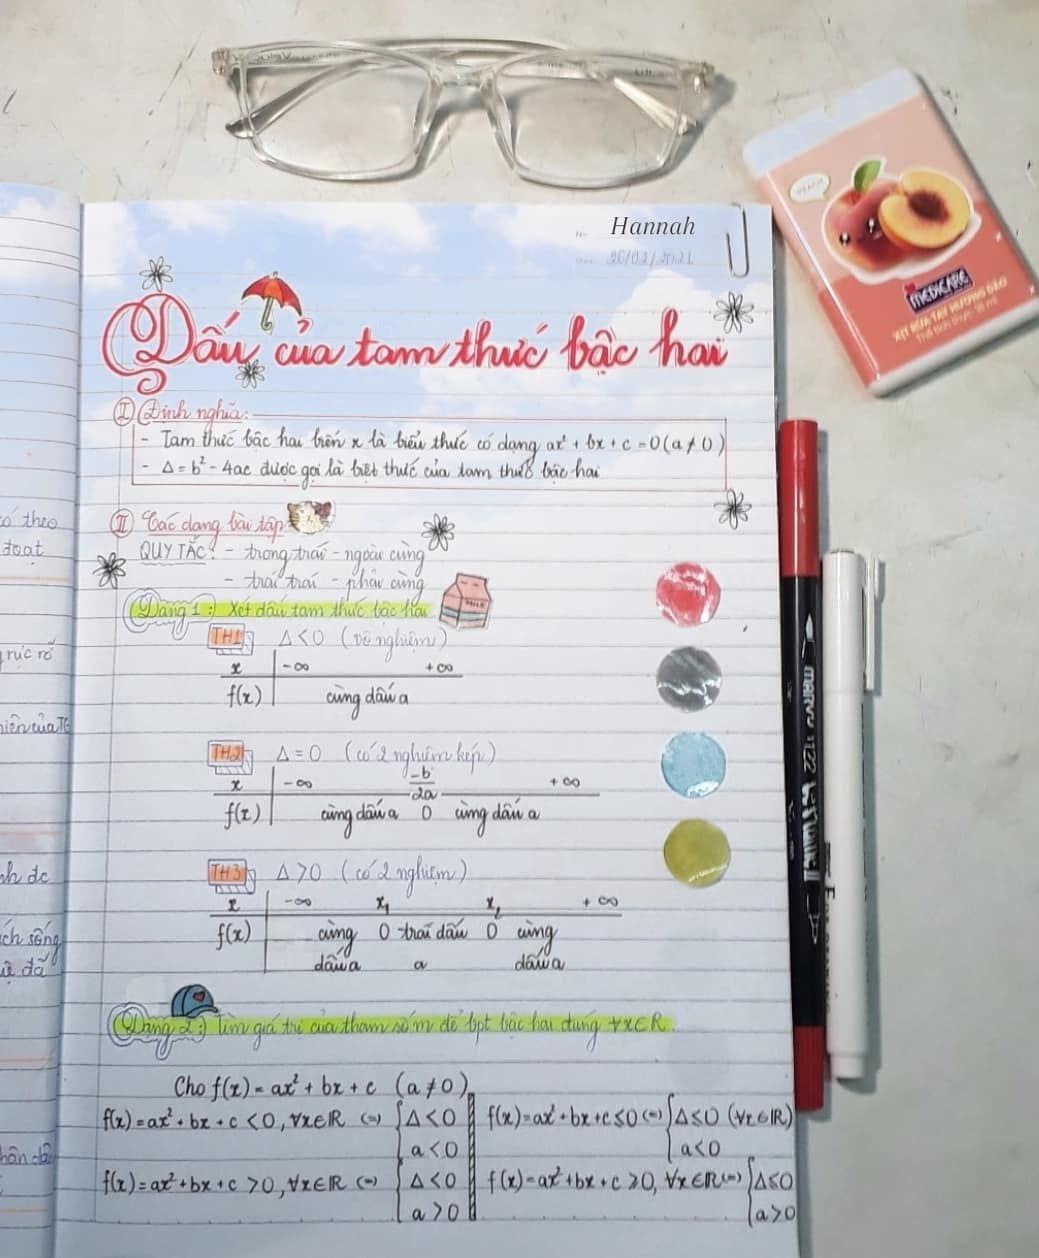 Hannah
26/02/2021
Dấu của tam thức bậc hai
I Định nghĩa:
- Tam thức bậc hai trên x là biểu thức có dạng ax² + bx + c = 0 (a ≠ 0)
- Δ = b² - 4ac được gọi là biệt thức của tam thức bậc hai
II Các dạng bài tập
QUY TẮC: - trong trái - ngoài cùng
- trái trái - phải cùng
Dạng 1: Xét dấu tam thức bậc hai
TH1 Δ < 0 (vô nghiệm)
x -∞ +∞
f(x) cùng dấu a
TH2 Δ = 0 (có 2 nghiệm kép)
x -∞ -b/2a +∞
f(x) cùng dấu a 0 cùng dấu a
TH3 Δ > 0 (có 2 nghiệm)
x -∞ x₁ x₂ +∞
f(x) cùng 0 trái dấu 0 cùng
dấu a a dấu a
Dạng 2: Tìm giá trị của tham số m để bpt bậc hai đúng ∀x∈R.
Cho f(x) = ax² + bx + c (a ≠ 0)
f(x) = ax² + bx + c < 0, ∀x∈R (=) { Δ < 0
a < 0
f(x) = ax² + bx + c > 0, ∀x∈R (=) { Δ < 0
a > 0
f(x) = ax² + bx + c ≤ 0 (=) { Δ ≤ 0 (∀x∈R)
a < 0
f(x) = ax² + bx + c ≥ 0, ∀x∈R (=) { Δ ≤ 0
a > 0
theo
đoạt
rực rỡ
của TG
sống
đã
PEACH
MEDICARE
XỊT RỬA TAY HƯƠNG ĐÀO
MILK
MARVY 1122 LE PLUME II